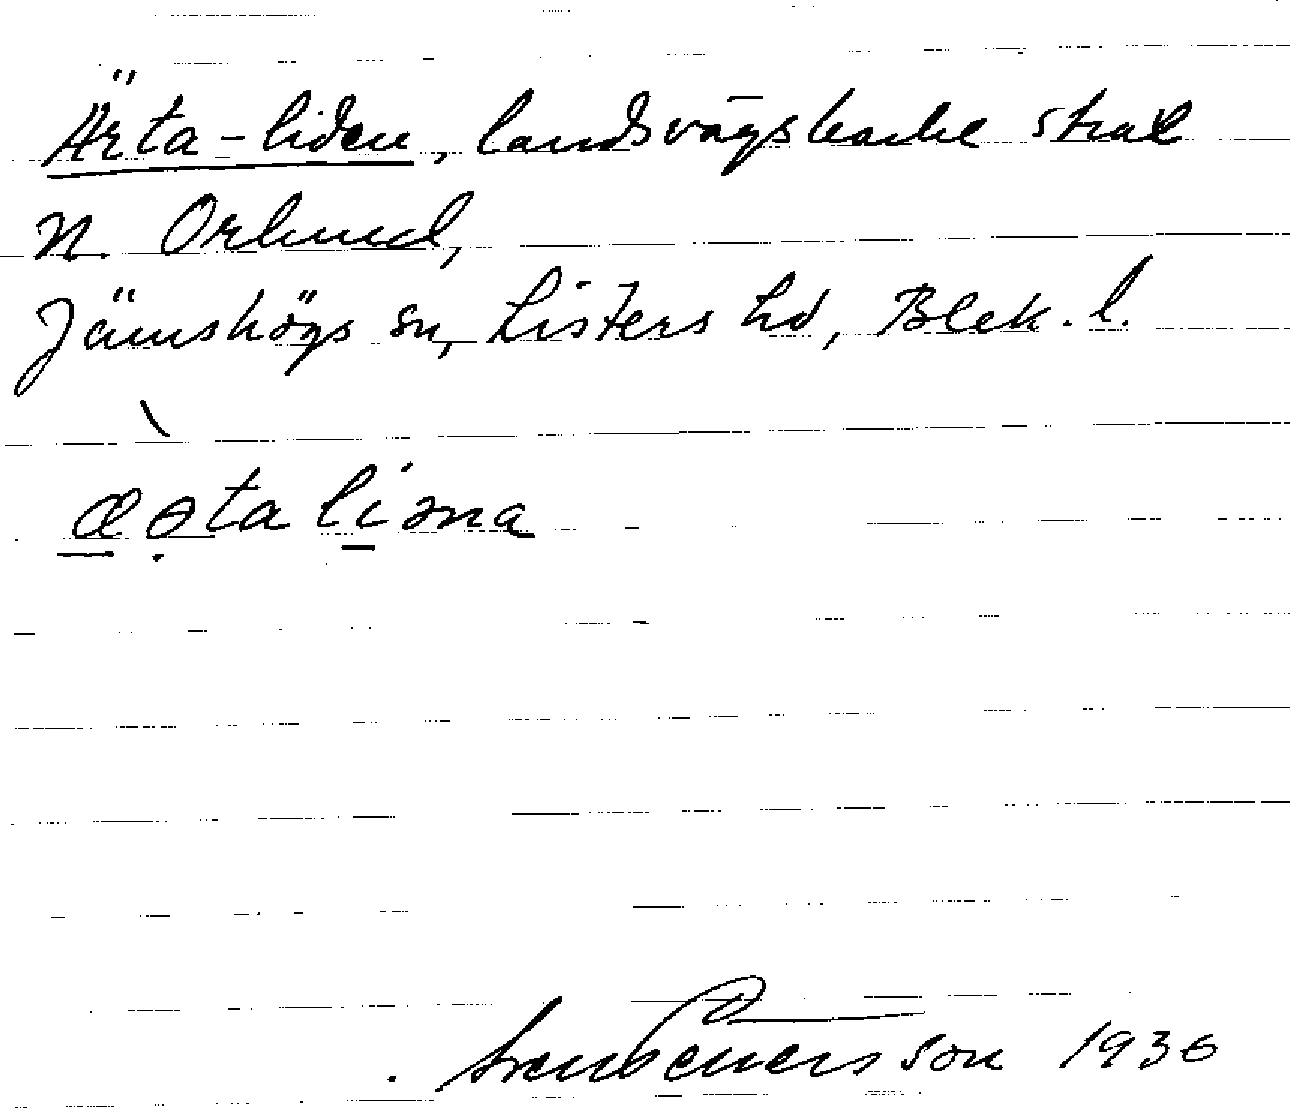 Ärta-liden, landsvägsbacke strax
N. Orlund,
Jämshögs sn, Listers hd, Blek. l.
æəta liəna
Sven Benerson 1936